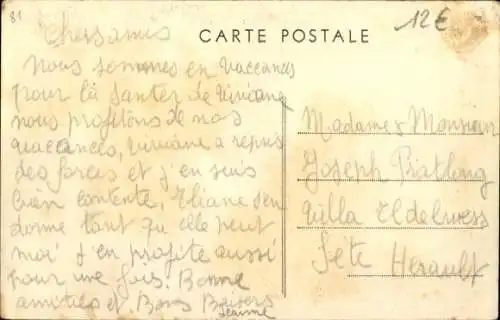 81
12€
CARTE POSTALE
Chers amis
nous sommes en Vaccances
pour la santer de Viviane
nous profitons de nos
vaccances, viviane a repris
des forces et j'en suis
bien contente, Eliane s'en
donne tant qu'elle peut
moi j'en profite aussi
pour une fois. Bonne
amities et Bons Baisers
Jeanne
Madame & Monsieur
Joseph
Villa Eldelwess
Sète Herault